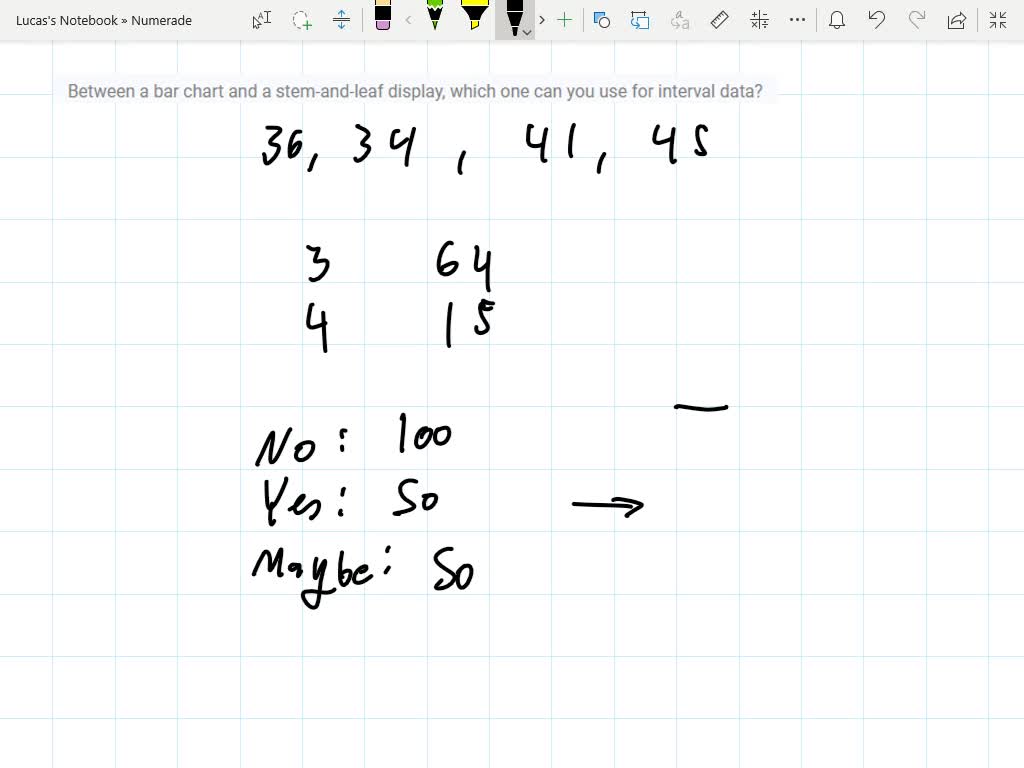 Lucas's Notebook » Numerade
Between a bar chart and a stem-and-leaf display, which one can you use for interval data?
36, 34, 41, 45
3 64
4 15
No: 100
Yes: 50
Maybe: 50